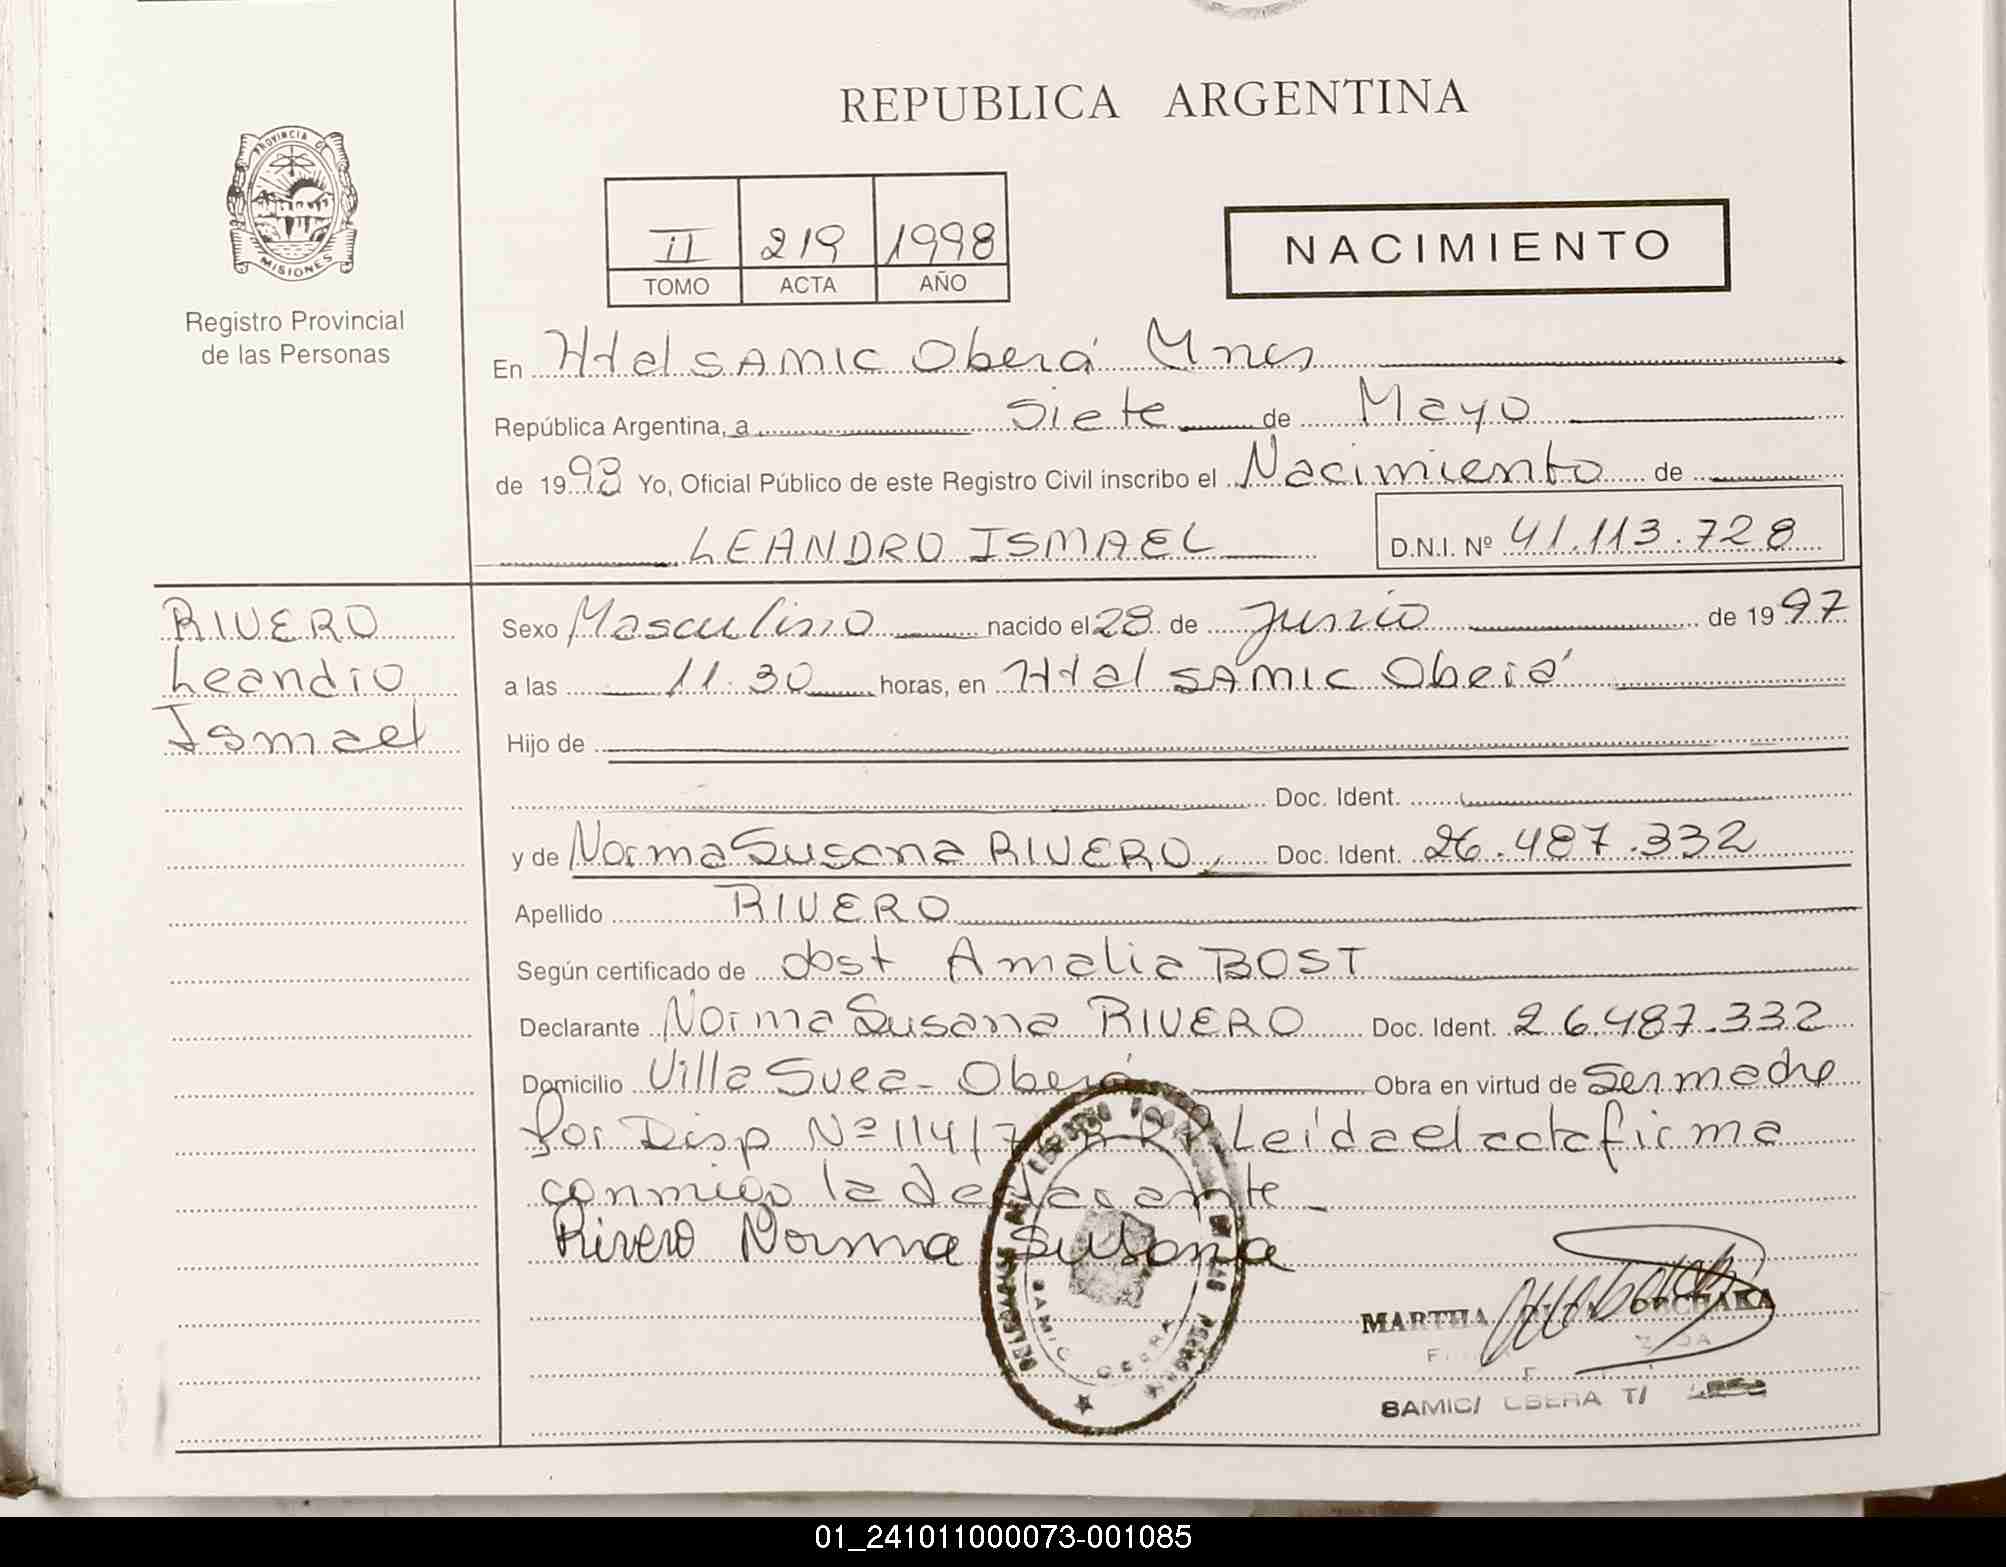 REPUBLICA ARGENTINA
PROVINCIA DE
MISIONES
Registro Provincial
de las Personas
II 219 1998
TOMO ACTA AÑO
NACIMIENTO
En Htal SAMIC Oberá Mnes
República Argentina, a Siete de Mayo
de 1998 Yo, Oficial Público de este Registro Civil inscribo el Nacimiento de
LEANDRO ISMAEL D.N.I. Nº 41.113.728
RIVERO
Leandro
Ismael
Sexo Masculino nacido el 28 de Junio de 1997
a las 11.30 horas, en Htal SAMIC Oberá
Hijo de
Doc. Ident.
y de Norma Susana RIVERO, Doc. Ident. 26.487.332
Apellido RIVERO
Según certificado de Obst Amalia BOST
Declarante Norma Susana RIVERO Doc. Ident. 26.487.332
Domicilio Villa Svea - Oberá Obra en virtud de Ser madre
Por Disp Nº 114/7 Leída el acta firma
conmigo la declarante
Rivero Norma Susana
MARTHA
SAMIC/ OBERA T/
SAMIC OBERA
01_241011000073-001085